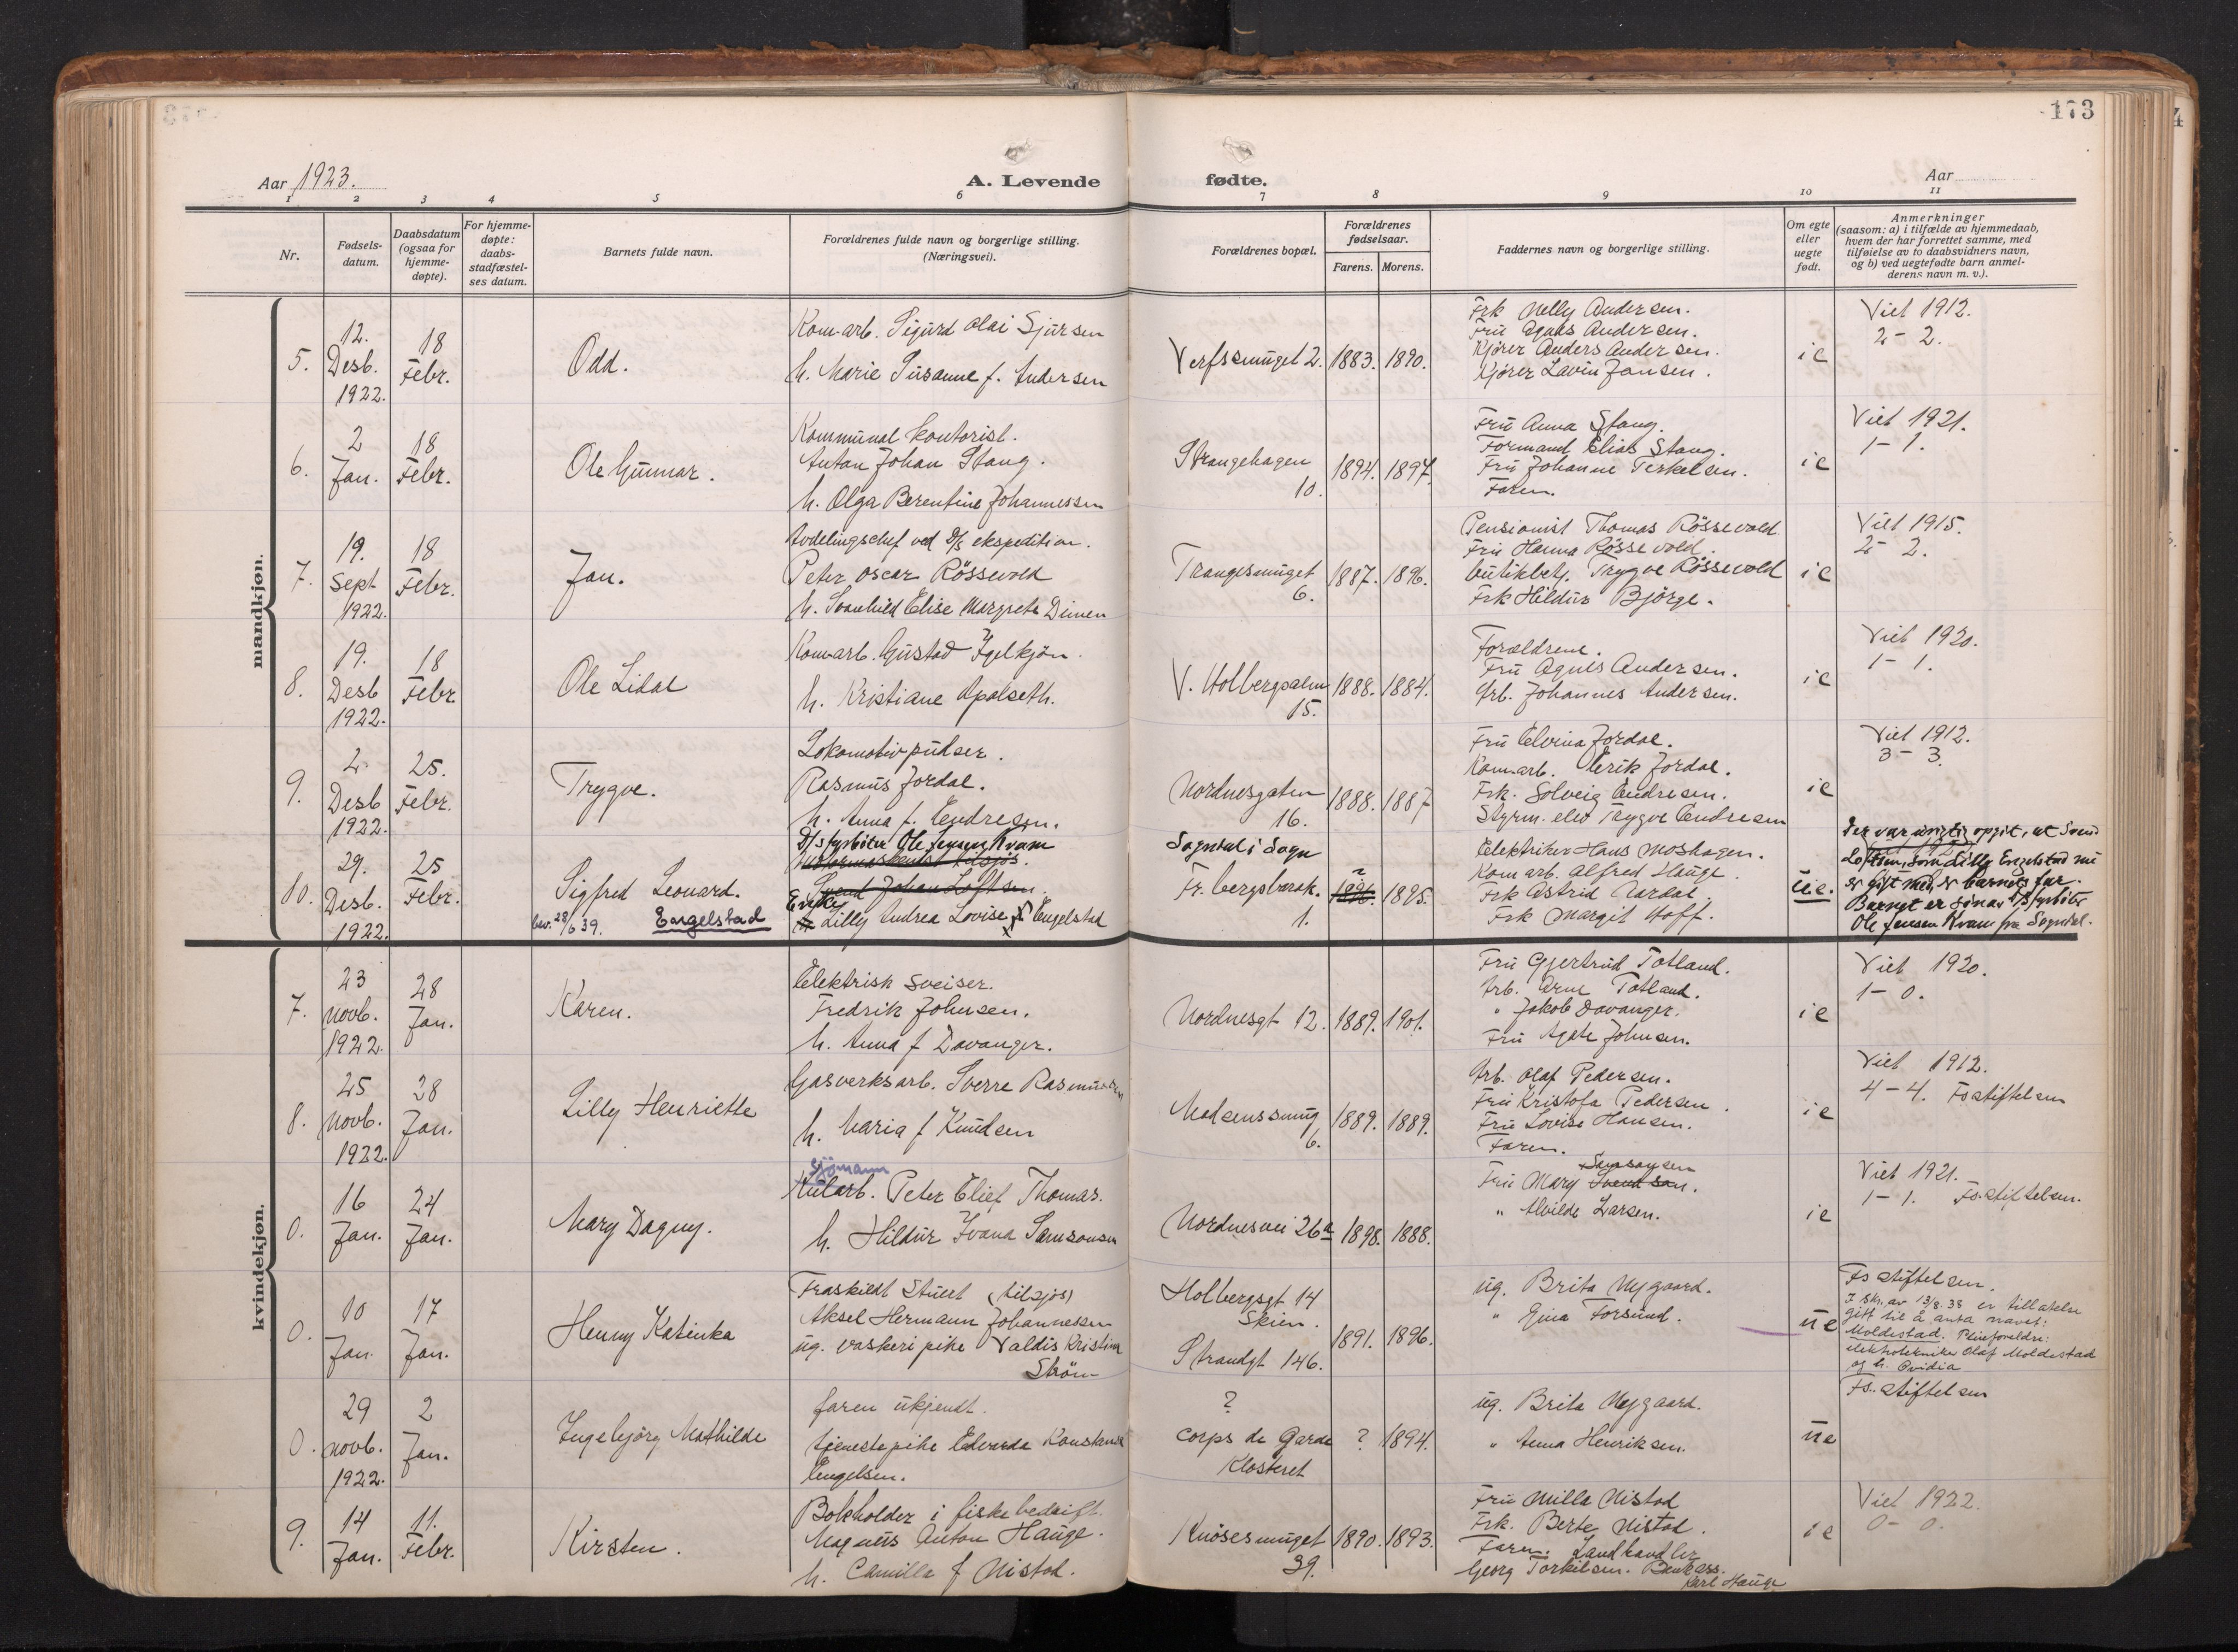 173
Aar 1923.
A. Levende
fødte.
Aar
1 2 3 4 5 6 7 8 9 10 11
Nr.
Fødsels-
datum.
Daabsdatum
(ogsaa for
hjemme-
døpte).
For hjemme-
døpte:
daabs-
stadfæstel-
ses datum.
Barnets fulde navn.
Forældrenes fulde navn og borgerlige stilling.
(Næringsvei).
Forældrenes bopæl.
Forældrenes
fødselsaar.
Farens. Morens.
Faddernes navn og borgerlige stilling.
Om egte
eller
uegte
født.
Anmerkninger
(saasom: a) i tilfælde av hjemmedaab,
hvem der har forrettet samme, med
tilføielse av to daabsvidners navn,
og b) ved uegtefødte barn anmel-
derens navn m. v.).
mandkjøn.
5.
12.
Desb.
1922.
18
Febr.
Odd.
Kom.arb. Sigurd Olai Sjursen
h. Marie Susanne f. Andersen
Verfssmuget 2.
1883. 1890.
Frk Nelly Andersen.
Fru Agnes Andersen.
Kjører Anders Andersen.
Kjører Lavin Jansen.
ie
Viet 1912.
2 - 2.
6.
2
Jan.
18
Febr.
Ole Gunnar.
Kommunal kontorist.
Anton Johan Stang.
h. Olga Berentine Johannessen
Strangehagen
10.
1894. 1897.
Fru Anna Stang.
Formand Elias Stang.
Fru Johanne Terkelsen.
Faren.
ie
Viet 1921.
1 - 1.
7.
19.
Sept
1922.
18
Febr.
Jan.
Avdelingschef ved D/s ekspedition.
Peter Oscar Rössevold
h. Svanhild Elise Margrete Dimen
Trangesmuget
6.
1887. 1896.
Pensionist Thomas Rössevold
Fru Hanna Rössevold.
butikbetj. Trygve Rössevold
Frk Hildur Bjørge.
ie
Viet 1915.
2 - 2.
8.
19.
Desb
1922.
18
Febr.
Ole Lidal
Kom.arb. Gustad Igelkjøn.
h. Kristiane Apalseth.
V. Holbergsalm
15.
1888. 1884.
Forældrene.
Fru Agnes Andersen.
Arb. Johannes Andersen.
ie
Viet 1920.
1 - 1.
9.
2
Desb
1922.
25.
Febr.
Trygve.
Lokomotivpudser.
Rasmus Jordal.
h. Anna f. Endresen.
Nordnesgaten
16.
1888. 1887
Fru Elvina Jordal.
Kom.arb. Erik Jordal.
Frk. Solveig Endresen.
Styrm. elev Trygve Endresen
ie
Viet 1912.
3 - 3.
10.
29.
Desb.
1922.
25
Febr.
Sigfred Leonard.
bev. 28/6 39. Engelstad
D/s fyrbøter Ole Jensen Kvam
Svend Johan Loftsen.
Enke
Lilly Andrea Lovise f Engelstad
Sogndal i Sogn
Fr. bergsbarak.
1.
1896. 1895.
Elektriker Hans Moshagen.
Kom arb. Alfred Hauge.
Frk Astrid Aardal.
Frk Margit Hoff.
ue.
Der var urigtig opgit, at Svend
Loftsen, som Lilly Engelstad nu
er gift med, er barnets far.
Barnet er sønav D/s fyrbøter
Ole Jensen Kvam fra Sogndal.
kvindekjøn.
7.
23
Novb.
1922.
28
Jan.
Karen.
Elektrisk sveiser.
Fredrik Johnsen.
h. Anna f Davanger.
Nordnesgt 12.
1889. 1901.
Fru Gjertrud Totland.
Arb. Arne Totland.
" Jakob Davanger.
Fru Agate Johnsen.
ie
Viet 1920.
1 - 0.
8.
25
Novb.
1922.
28
Jan.
Lilly Henriette
Gasverksarb. Sverre Rasmussen
h. Maria f Knudsen
Madsenssmug
6.
1889. 1889.
Arb. Olaf Pedersen.
Fru Kristofa Pedersen.
Fru Lovise Hansen.
Faren.
ie
Viet 1912.
4 - 4. Fs stiftelsen
0.
16
Jan.
24
Jan.
Mary Dagny.
sjømann
Kularb. Peter Elief Thomas.
h. Hildur Ivana Samsonsen
Nordnesvei 26a
1898. 1888.
Samsonsen
Fru Mary Svendsen.
" Alvilde Larsen.
ie
Viet 1921.
1 - 1. Fs. stiftelsen.
0.
10
Jan.
17
Jan.
Henny Katinka
Fraskildt Stuert (tilsjøs)
Aksel Hermann Johannessen
ug. vaskeripike Valdis Kristine
Strøm
Holbergsgt 14
Skien.
Strandgt 146.
1891. 1896.
ug. Brita Nygaard.
" Gina Forsund.
ue
Fs stiftelsen.
I skr. av 13/8.38 er tillatelse
gitt til å anta navet:
Moldestad. Pleieforeldre:
elektrotekniker Olaf Moldestad
og h. Ovidia
0.
29
novb.
1922.
2
Jan.
Ingebjørg Mathilde
faren ukjendt.
tjenestepike Edvarda Konstanse
Engelsen.
?
Corps de Garde
Klosteret
? 1894.
ug. Brita Nygaard.
" Anna Henriksen.
ue
Fs. stiftelsen
9.
14
Jan.
11.
Febr.
Kirsten.
Bokholder i fiskebedrift.
Magnus Anton Hauge.
h. Camilla f Nistad.
Knøsesmuget
39.
1890. 1893.
Fru Milla Nistad
Frk. Berte Nistad.
Faren. Landhandler
Georg Torkilsen. Bankass.
Karl Hauge
ie
Viet 1922.
0 - 0.